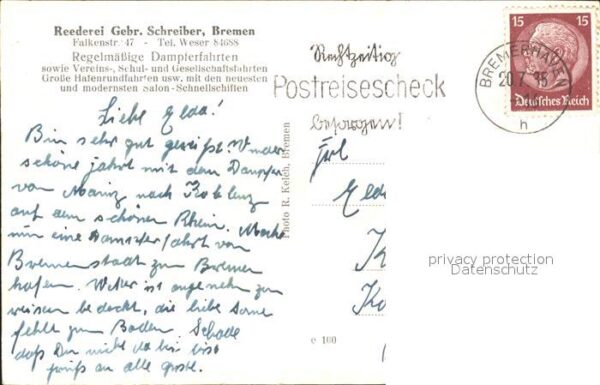 Reederei Gebr. Schreiber, Bremen
Falkenstr. 47 - Tel. Weser 84688
Regelmäßige Dampferfahrten
sowie Vereins-, Schul- und Gesellschaftsfahrten
Große Hafenrundfahrten usw. mit den neuesten
und modernsten Salon-Schnellschiffen
Liebe Elda!
Bin sehr gut gereist.
schöne Fahrt mit dem Dampfer
von Mainz nach Koblenz
auf dem schönen Rhein. Mache
nun eine Dampferfahrt von
Bremenstadt zu Bremer
hafen. Wetter ist angenehm zu
weisen bedeckt, die liebe Sonne
fehlt zum Baden. Schade
daß Du nicht da bist
Gruß an alle
Photo R. Kelch, Bremen
e 100
Rechtzeitig
Postreisescheck
besorgen!
BREMERHAVEN
20.7.35
h
15 15
Deutsches Reich
Frl
Elda
K
Ko
privacy protection
Datenschutz